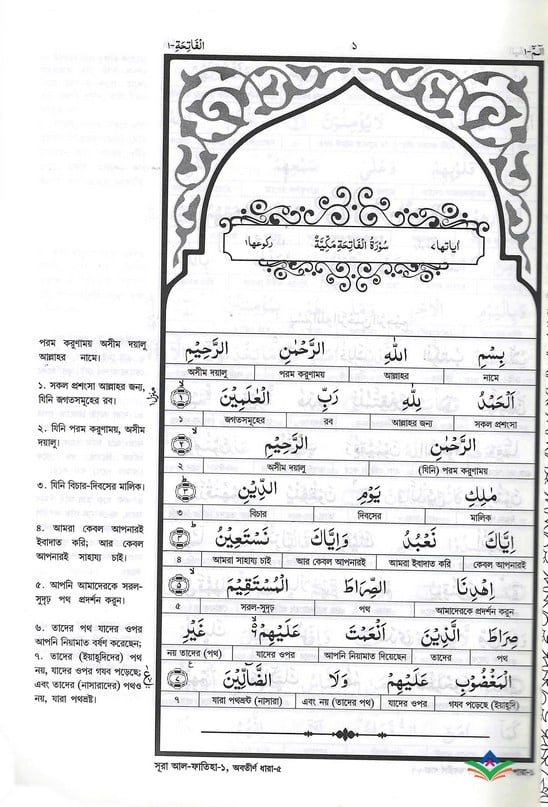 الٓمّٓ-١ ١ اَلْفَاتِحَةِ-١
اٰیاتها٧ سُوْرَةُ الْفَاتِحَةِ مَكِّيَّةٌ رکوعها١
পরম করুণাময় অসীম দয়ালু
আল্লাহর নামে।
১. সকল প্রশংসা আল্লাহর জন্য,
যিনি জগতসমূহের রব।
২. যিনি পরম করুণাময়, অসীম
দয়ালু।
৩. যিনি বিচার-দিবসের মালিক।
৪. আমরা কেবল আপনারই
ইবাদাত করি; আর কেবল
আপনারই সাহায্য চাই।
৫. আপনি আমাদেরকে সরল-
সুদৃঢ় পথ প্রদর্শন করুন।
৬. তাদের পথ যাদের ওপর
আপনি নিয়ামাত বর্ষণ করেছেন;
৭. তাদের (ইয়াহুদিদের) পথ
নয়, যাদের ওপর গযব পড়েছে;
এবং তাদের (নাসারাদের) পথও
নয়, যারা পথভ্রষ্ট।
بِسْمِ اللّٰهِ الرَّحْمٰنِ الرَّحِيْمِ
অসীম দয়ালু পরম করুণাময় আল্লাহর নামে
اَلْحَمْدُ لِلّٰهِ رَبِّ الْعٰلَمِيْنَ ۙ‏﴿١﴾
১ জগতসমূহের রব আল্লাহর জন্য সকল প্রশংসা
الرَّحْمٰنِ الرَّحِيْمِ ۙ‏﴿٢﴾
২ অসীম দয়ালু (যিনি) পরম করুণাময়
مٰلِكِ يَوْمِ الدِّيْنِ ؕ‏﴿٣﴾
৩ বিচার দিবসের মালিক
اِيَّاكَ نَعْبُدُ وَاِيَّاكَ نَسْتَعِيْنُ ؕ‏﴿٤﴾
৪ আমরা সাহায্য চাই আর কেবল আপনারই আমরা ইবাদাত করি কেবল আপনারই
اِهْدِنَا الصِّرَاطَ الْمُسْتَقِيْمَ ۙ‏﴿٥﴾
৫ সরল-সুদৃঢ় পথ আমাদেরকে প্রদর্শন করুন
صِرَاطَ الَّذِيْنَ اَنْعَمْتَ عَلَيْهِمْ ۙ۬‏٦ غَيْرِ
নয় তাদের (পথ) যাদের ওপর আপনি নিয়ামাত দিয়েছেন তাদের পথ
الْمَغْضُوْبِ عَلَيْهِمْ وَلَا الضَّآلِّيْنَ ‏﴿٧﴾
৭ যারা পথভ্রষ্ট (নাসারা) এবং নয় (তাদের পথ) যাদের ওপর গযব পড়েছে (ইয়াহুদি)
সূরা আল-ফাতিহা-১, অবতীর্ণ ধারা-৫ পারা-১